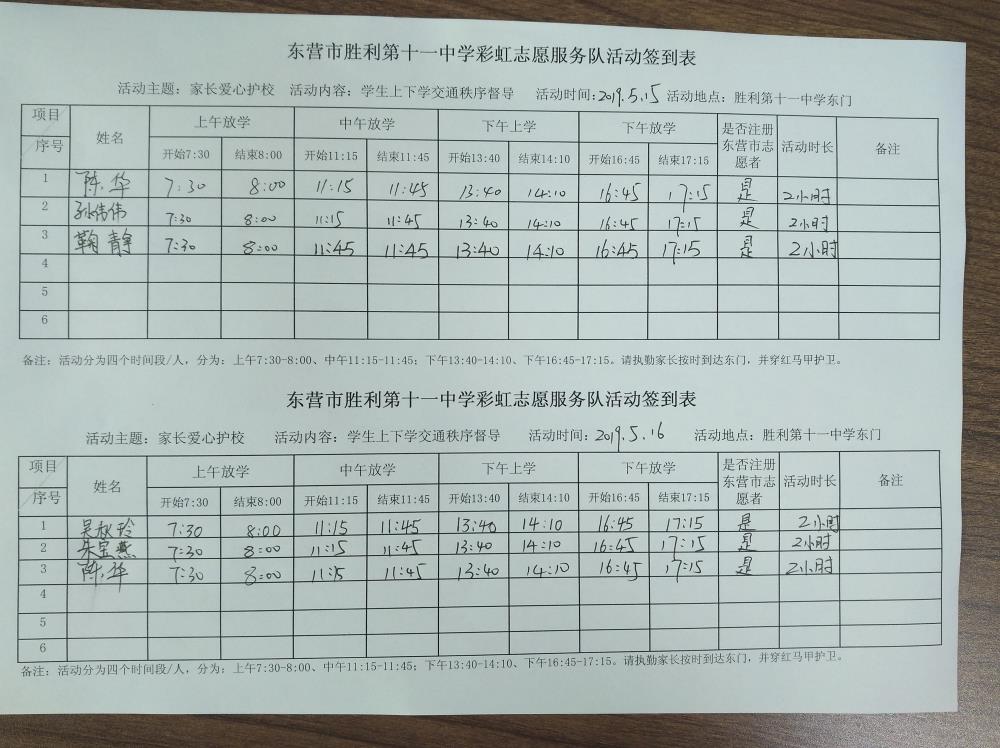 东营市胜利第十一中学彩虹志愿服务队活动签到表
活动主题：家长爱心护校 活动内容：学生上下学交通秩序督导 活动时间：2019.5.15 活动地点：胜利第十一中学东门
项目 序号 姓名 上午放学 中午放学 下午上学 下午放学 是否注册东营市志愿者 活动时长 备注
开始7:30 结束8:00 开始11:15 结束11:45 开始13:40 结束14:10 开始16:45 结束17:15
1 陈华 7:30 8:00 11:15 11:45 13:40 14:10 16:45 17:15 是 2小时
2 孙伟伟 7:30 8:00 11:15 11:45 13:40 14:10 16:45 17:15 是 2小时
3 鞠静 7:30 8:00 11:45 11:45 13:40 14:10 16:45 17:15 是 2小时
4
5
6
备注：活动分为四个时间段/人，分为：上午7:30-8:00、中午11:15-11:45；下午13:40-14:10、下午16:45-17:15。请执勤家长按时到达东门，并穿红马甲护卫。
东营市胜利第十一中学彩虹志愿服务队活动签到表
活动主题：家长爱心护校 活动内容：学生上下学交通秩序督导 活动时间：2019.5.16 活动地点：胜利第十一中学东门
项目 序号 姓名 上午放学 中午放学 下午上学 下午放学 是否注册东营市志愿者 活动时长 备注
开始7:30 结束8:00 开始11:15 结束11:45 开始13:40 结束14:10 开始16:45 结束17:15
1 吴秋玲 7:30 8:00 11:15 11:45 13:40 14:10 16:45 17:15 是 2小时
2 朱宝燕 7:30 8:00 11:15 11:45 13:40 14:10 16:45 17:15 是 2小时
3 陈华 7:30 8:00 11:15 11:45 13:40 14:10 16:45 17:15 是 2小时
4
5
6
备注：活动分为四个时间段/人，分为：上午7:30-8:00、中午11:15-11:45；下午13:40-14:10、下午16:45-17:15。请执勤家长按时到达东门，并穿红马甲护卫。